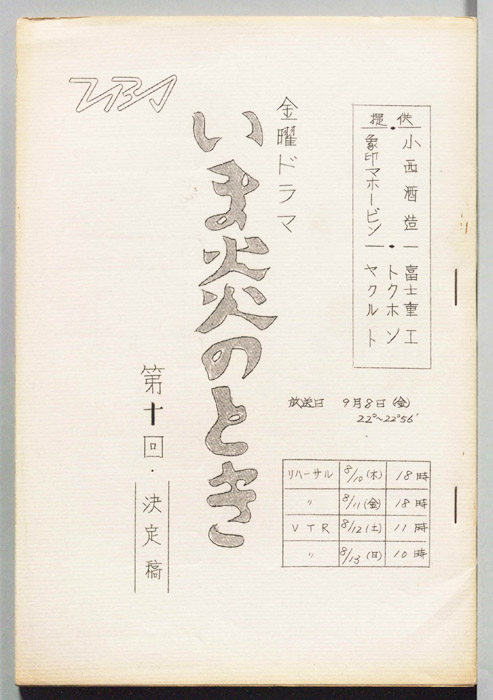 TBS
提供
小西酒造 ー 富士重工
・トクホン
象印マホービン ー ヤクルト
金曜ドラマ
いま炎のとき
第十回・決定稿
放送日 9月8日(金)
22°~22°56'
リハーサル 8/10(木) 18時
〃 8/11(金) 18時
VTR 8/12(土) 11時
〃 8/13(日) 10時